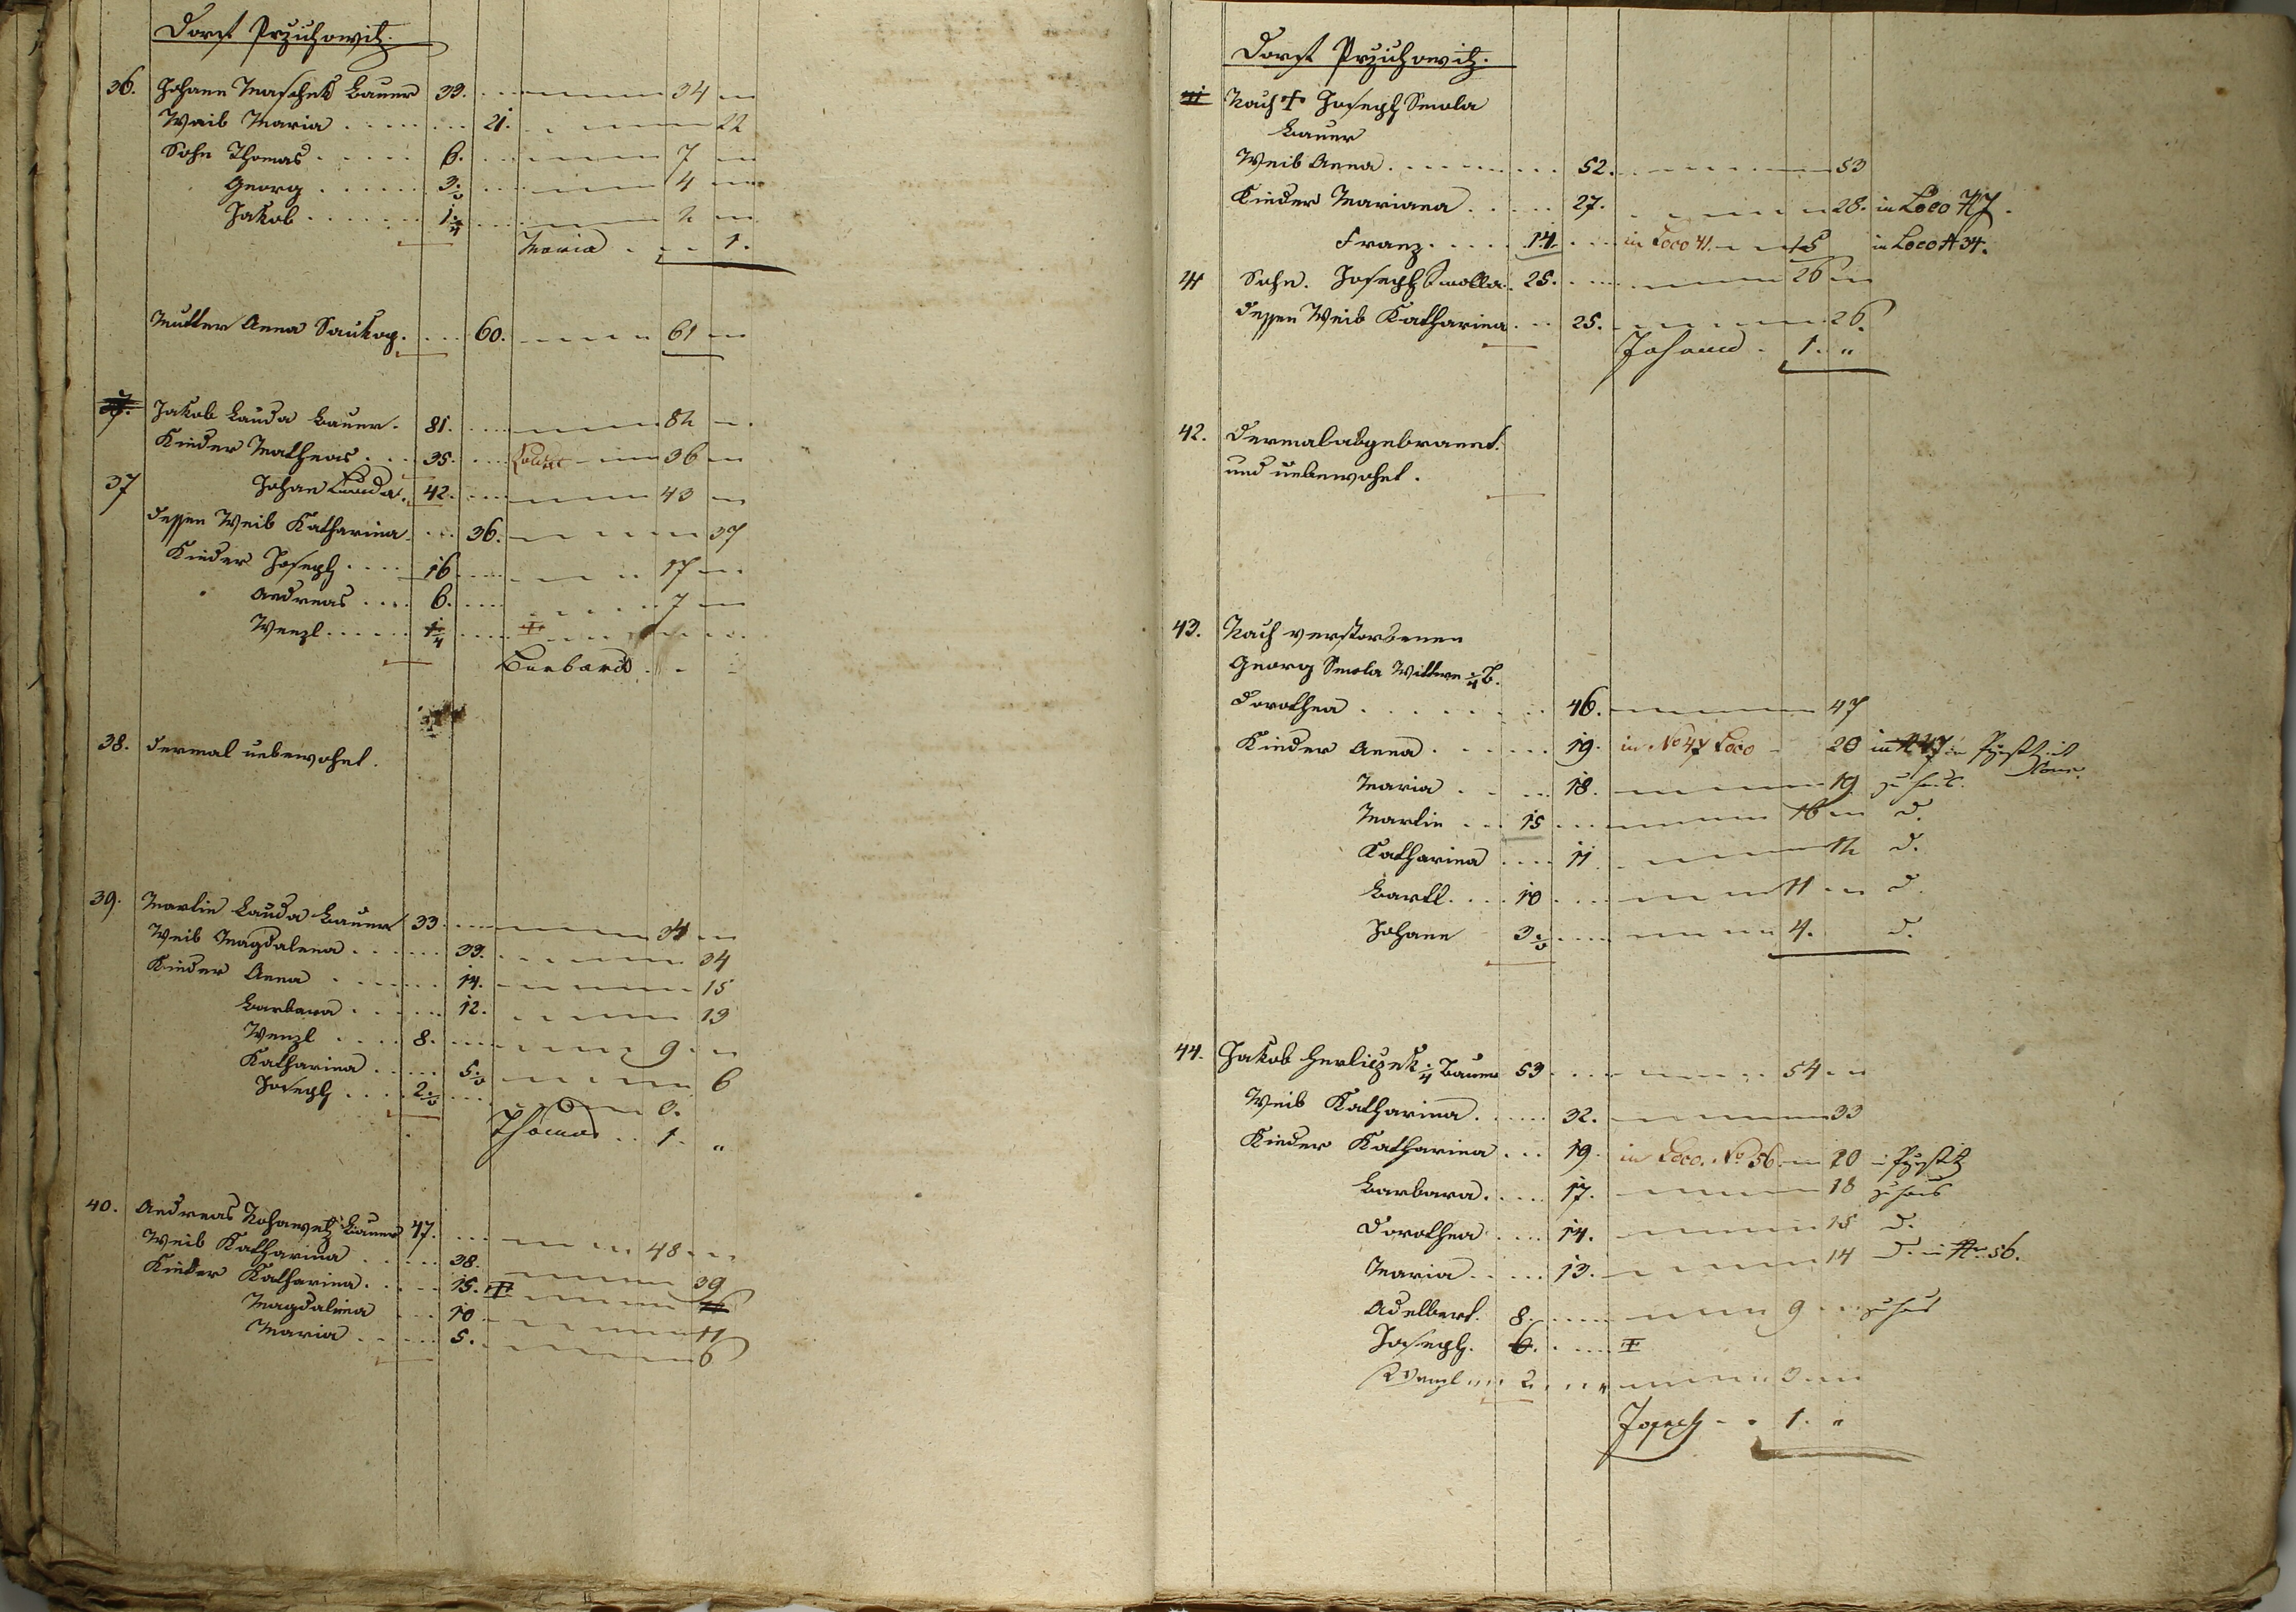 Dorf Przichowitz.
36. Johann Maschek Bauer 33. 34
Weib Maria 21. 22
Sohn Thomas 6. 7
Georg 3. 4
Jakob 1 2
Maria 1.
Mutter Anna Saukop. 60. 61
37. Jakob Lauda Bauer. 81. 82
Kinder Matheas 35. 36
37 Johan Lauda. 42. 43
dessen Weib Katharina 36. 37
Kinder Joseph 16 17
Andreas 6. 7
Wenzl 1/4
Barbara
38. dermal unbewohnt.
39. Martin Lauda Bauer 33. 34
Weib Magdalena 33. 34
Kinder Anna 14. 15
Barbara 12. 13
Wenzl 8. 9
Katharina 5. 6
Joseph 2. 3.
Thomas 1. "
40. Andreas Kohaweh Bauer 47. 48
Weib Katharina 38. 39
Kinder Katharina 15. 16
Magdalena 10 11
Maria 5. 6
Dorf Przichowitz.
41 Nach † Joseph Smola
Bauer
Weib Anna 52. 53
Kinder Mariana 27. 28. in Loco N 7.
Franz 14. in Loco 41. 15 in Loco N 34.
41 Sohn. Joseph Smolla 25. 26
dessen Weib Katharina 25. 26.
Johann 1. "
42. dermal abgebrannt.
und unbewohnt.
43. Nach verstorbenen
Georg Smola Wittwe 1/4 B.
Dorothea 46. 47
Kinder Anna 19. in No 47 Loco 20 in N 47
Maria 18. 19 zu haus.
Martin 15 16 d.
Katharina 11 12 d.
Bartl. 10 11 d.
Johann 3 4. d.
44. Jakob Herliczek 1/4 Bauer 53 54
Weib Katharina 32. 33
Kinder Katharina 19. in Loco. No 56. 20
Barbara 17. 18 zu haus
Dorothea 14. 15 d.
Maria 13. 14 d. in N 56.
Adelbert. 8. 9 zu haus
Joseph. 6. †
Wenzl 2. 3
Joseph 1. "